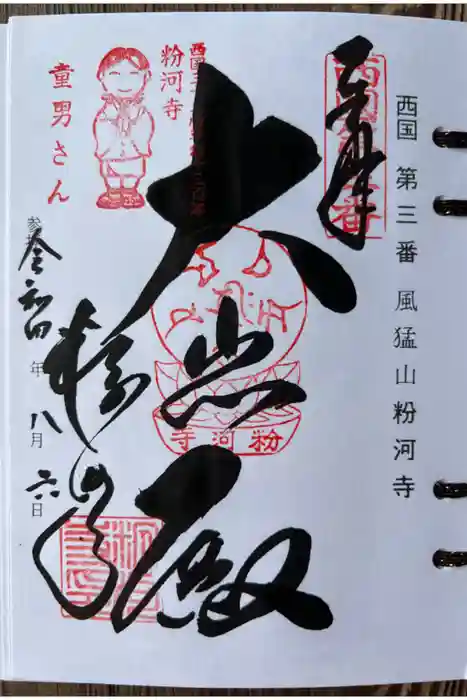 西国 第三番 風猛山 粉河寺
奉拝
西国第三番
大悲殿
粉河寺
粉河寺
童男さん
令和四年 八月 六日